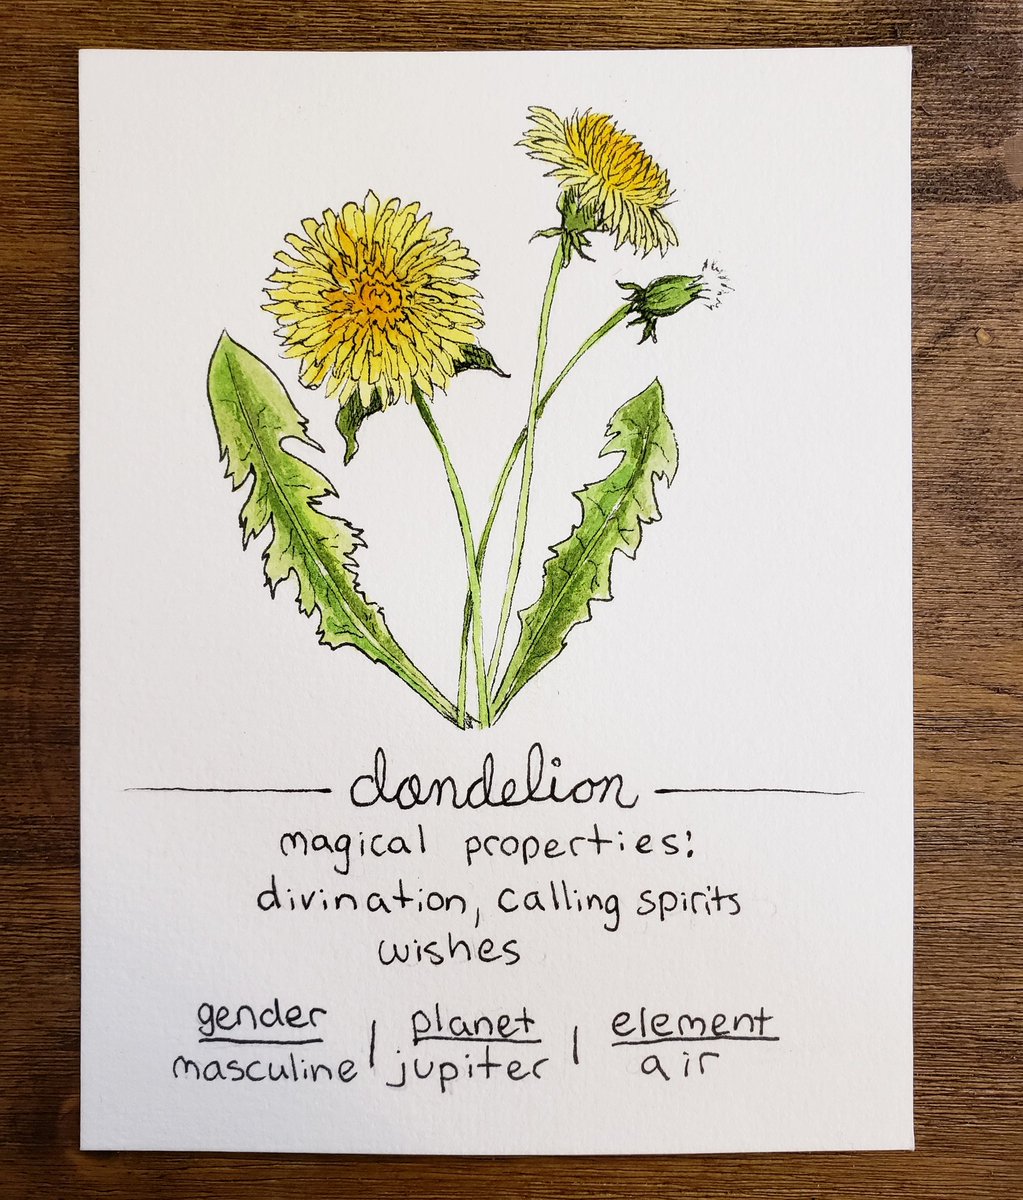 dandelion
magical properties:
divination, calling spirits
wishes
gender | planet | element
masculine jupiter air